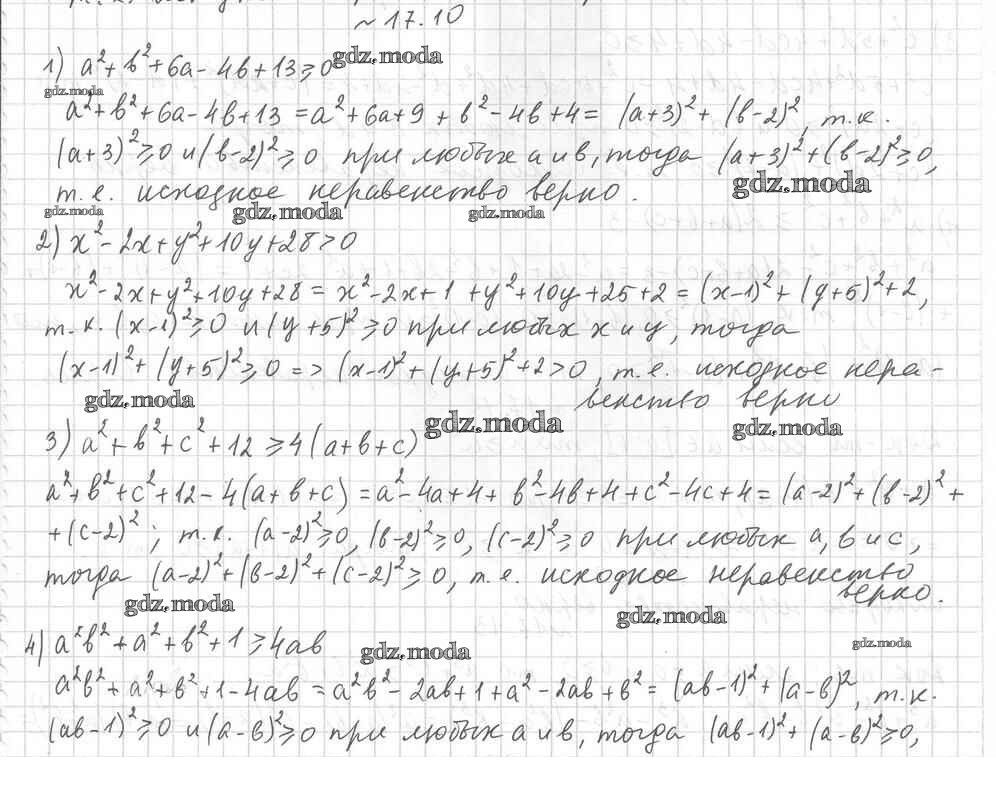 ~ 17.10
gdz.moda
1) a²+b²+6a-4b+13≥0
gdz.moda
a²+b²+6a-4b+13 = a²+6a+9 + b²-4b+4 = (a+3)²+(b-2)², т.к.
(a+3)²≥0 и (b-2)²≥0 при любых a и b, тогда (a+3)²+(b-2)²≥0,
gdz.moda
т.е. исходное неравенство верно.
gdz.moda gdz.moda gdz.moda
2) x²-2x+y²+10y+28>0
x²-2x+y²+10y+28 = x²-2x+1+y²+10y+25+2 = (x-1)²+(y+5)²+2,
т.к. (x-1)²≥0 и (y+5)²≥0 при любых x и y, тогда
(x-1)²+(y+5)²≥0 => (x-1)²+(y+5)²+2>0, т.е. исходное нера-
венство верно
gdz.moda gdz.moda gdz.moda
3) a²+b²+c²+12≥4(a+b+c)
a²+b²+c²+12-4(a+b+c) = a²-4a+4+b²-4b+4+c²-4c+4 = (a-2)²+(b-2)²+
+(c-2)²; т.к. (a-2)²≥0, (b-2)²≥0, (c-2)²≥0 при любых a, b и c,
тогда (a-2)²+(b-2)²+(c-2)²≥0, т.е. исходное неравенство
верно.
gdz.moda gdz.moda
4) a²b²+a²+b²+1≥4ab
gdz.moda gdz.moda
a²b²+a²+b²+1-4ab = a²b²-2ab+1+a²-2ab+b² = (ab-1)²+(a-b)², т.к.
(ab-1)²≥0 и (a-b)²≥0 при любых a и b, тогда (ab-1)²+(a-b)²≥0,